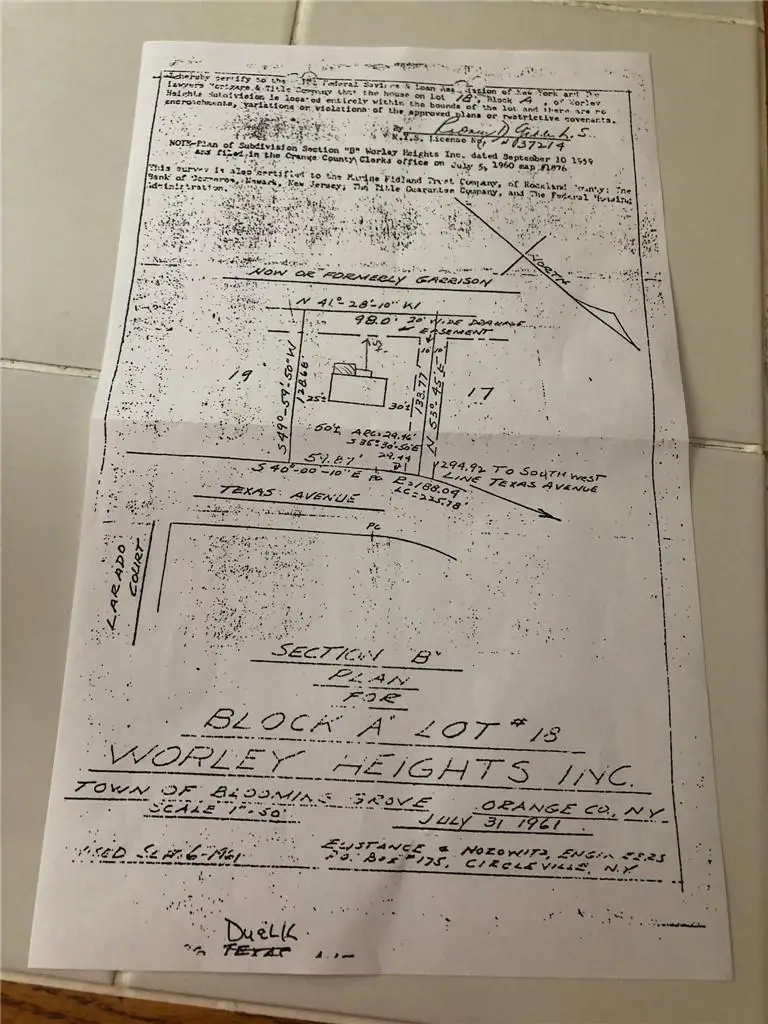 hereby certify to the Federal Savings & Loan Association of New York and The
Lawyers Mortgage & Title Company that the house on lot 18, block A, of Worley
Heights Subdivision is located entirely within the bounds of the lot and there are no
encroachments, variations or violations of the approved plans or restrictive covenants.
By
N.Y.S. License No. 37214
NOTE-Plan of Subdivision Section "B" Worley Heights Inc. dated September 10 1959
and filed in the Orange County Clerks office on July 5, 1960 map #1876
This survey is also certified to the Marine Midland Trust Company, of Rockland County; The
Bank of Commerce, Newark, New Jersey; The Title Guarantee Company, and The Federal Housing
Administration.
NORTH
NOW OR FORMERLY GARRISON
N 41°-28'-10" W
98.0'
20' WIDE DRAINAGE
EASEMENT
10' 10'
19
S 49°-59'-50" W
128.68'
25±
30±
133.77
N 53°-45' E
17
50±
ARC=29.46'
S 35°-30'-50" E
29.44
59.87'
S 40°-00'-10" E
PC
R=188.04
LC=225.78'
1294.92 TO SOUTHWEST
LINE TEXAS AVENUE
TEXAS AVENUE
PC
LARADO
COURT
SECTION "B"
PLAN
FOR
BLOCK "A" LOT #18
WORLEY HEIGHTS INC.
TOWN OF BLOOMING GROVE ORANGE CO., N.Y.
SCALE 1"=50'
JULY 31 1961
EUSTANCE & HOROWITZ, ENGINEERS
P.O. BOX #175, CIRCLEVILLE, N.Y
SEPT. 6-1961
DuelK
TEXAS